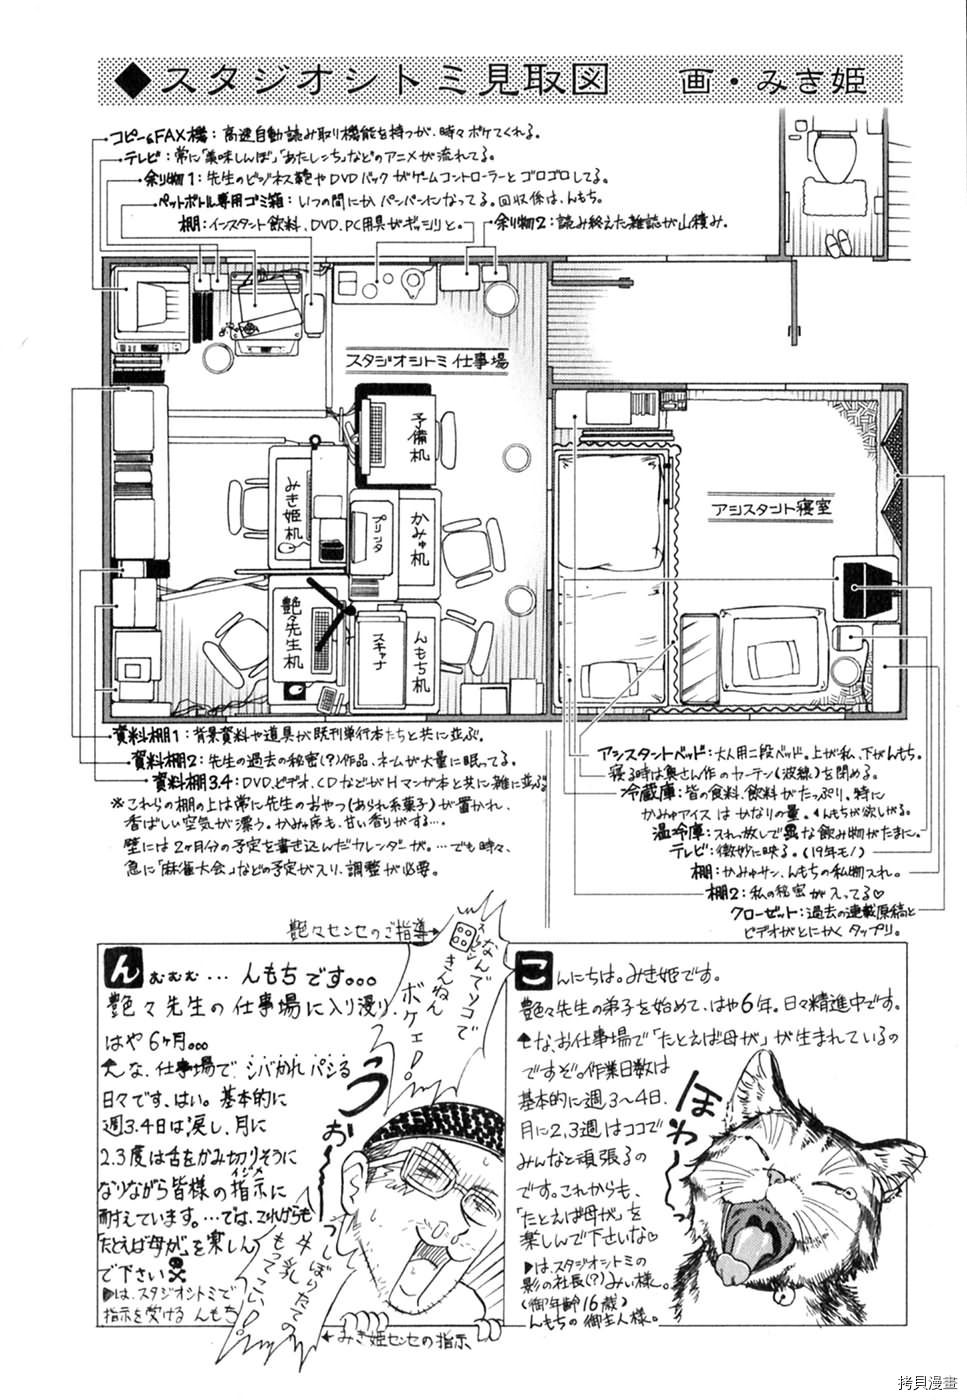 ◆スタジオシトミ見取図　画・みき姫
コピー&FAX機：高速自動読み取り機能を持つが、時々ボケてくれる。
テレビ：常に「美味しんぼ」「あたしンち」などのアニメが流れてる。
余り物1：先生のビジネス鞄やDVDパックがゲームコントローラーとゴロゴロしてる。
ペットボトル専用ゴミ箱：いつの間にかパンパンになってる。回収係は、んもち。
棚：インスタント飲料、DVD、PC用具がギッシリと。
余り物2：読み終えた雑誌が山積み。
スタジオシトミ仕事場
予備机
みき姫机
プリンタ
かみゅ机
艶々先生机
スキャナ
んもち机
アシスタント寝室
資料棚1：背景資料や道具が既刊単行本たちと共に並ぶ。
資料棚2：先生の過去の秘密(?)作品、ネームが大量に眠ってる。
資料棚3.4：DVD、ビデオ、CDなどがHマンガ本と共に雑に並ぶ
※これらの棚の上は常に先生のおやつ(あられ系菓子)が置かれ、
香ばしい空気が漂う。かみゅ席も、甘い香りがする…。
壁には2ヶ月分の予定を書き込んだカレンダーが。…でも時々、
急に「麻雀大会」などの予定が入り、調整が必要。
アシスタントベッド：大人用二段ベッド。上が私、下がんもち。
寝る時は奥さん作のカーテン(波線)を閉める。
冷蔵庫：皆の食料、飲料がたっぷり。特に
かみゅアイスはかなりの量。んもちが欲しがる。
温冷庫：入れっ放しで異な飲み物がたまに。
テレビ：微妙に映る。(19年モノ)
棚：かみゅサン、んもちの私物入れ。
棚2：私の秘密が入ってる♡
クローゼット：過去の連載原稿と
ビデオがとにかくタップリ。
艶々センセのご指導→
なんでソコで
きんねん
ボケェ!
んむむむ…んもちです。。。
艶々先生の仕事場に入り浸り、
はや6ヶ月。。。
な、仕事場でシバかれパシる
日々です、はい。基本的に
週3.4日は涙し、月に
2.3度は舌をかみ切りそうに
なりながら皆様の指示に
イジメ
耐えています。…では、これからも
「たとえば母が」を楽しん
で下さい☠
▶は、スタジオシトミで
指示を受けるんもち
うおぉー
しぼりたての
牛乳
もってこい!
←みき姫センセの指示
こんにちは。みき姫です。
艶々先生の弟子を始めて、はや6年。日々精進中です。
な、お仕事場で「たとえば母が」が生まれているの
ですぞ。作業日数は
基本的に週3〜4日、
月に2、3週はココで
みんなと頑張るの
です。これからも、
「たとえば母が」を
楽しんで下さいな♡
▶は、スタジオシトミの
影の社長(?)みぃ様。
(御年齢16歳)
んもちの御主人様。
ほわ〜
拷貝漫畫